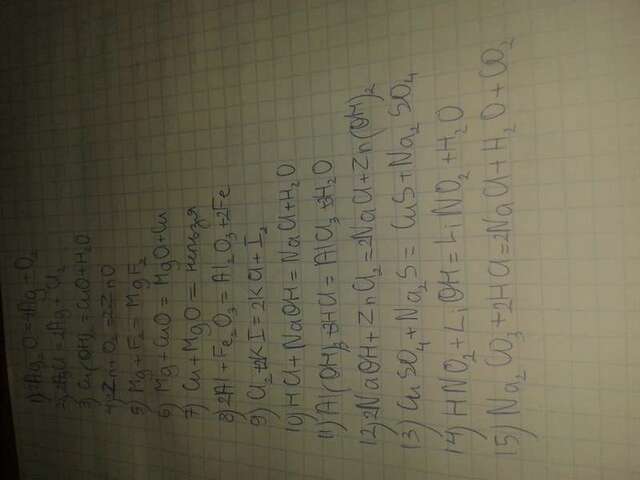 1) 2Ag₂O=4Ag+O₂
2) 2AgCl=2Ag+Cl₂
3) Cu(OH)₂=CuO+H₂O
4) 2Zn+O₂=2ZnO
5) Mg+F₂=MgF₂
6) Mg+CuO=MgO+Cu
7) Cu+MgO=нельзя
8) 2Al+Fe₂O₃=Al₂O₃+2Fe
9) Cl₂+2KI=2KCl+I₂
10) HCl+NaOH=NaCl+H₂O
11) Al(OH)₃+3HCl=AlCl₃+3H₂O
12) 2NaOH+ZnCl₂=2NaCl+Zn(OH)₂
13) CuSO₄+Na₂S=CuS+Na₂SO₄
14) HNO₂+LiOH=LiNO₂+H₂O
15) Na₂CO₃+2HCl=2NaCl+H₂O+CO₂